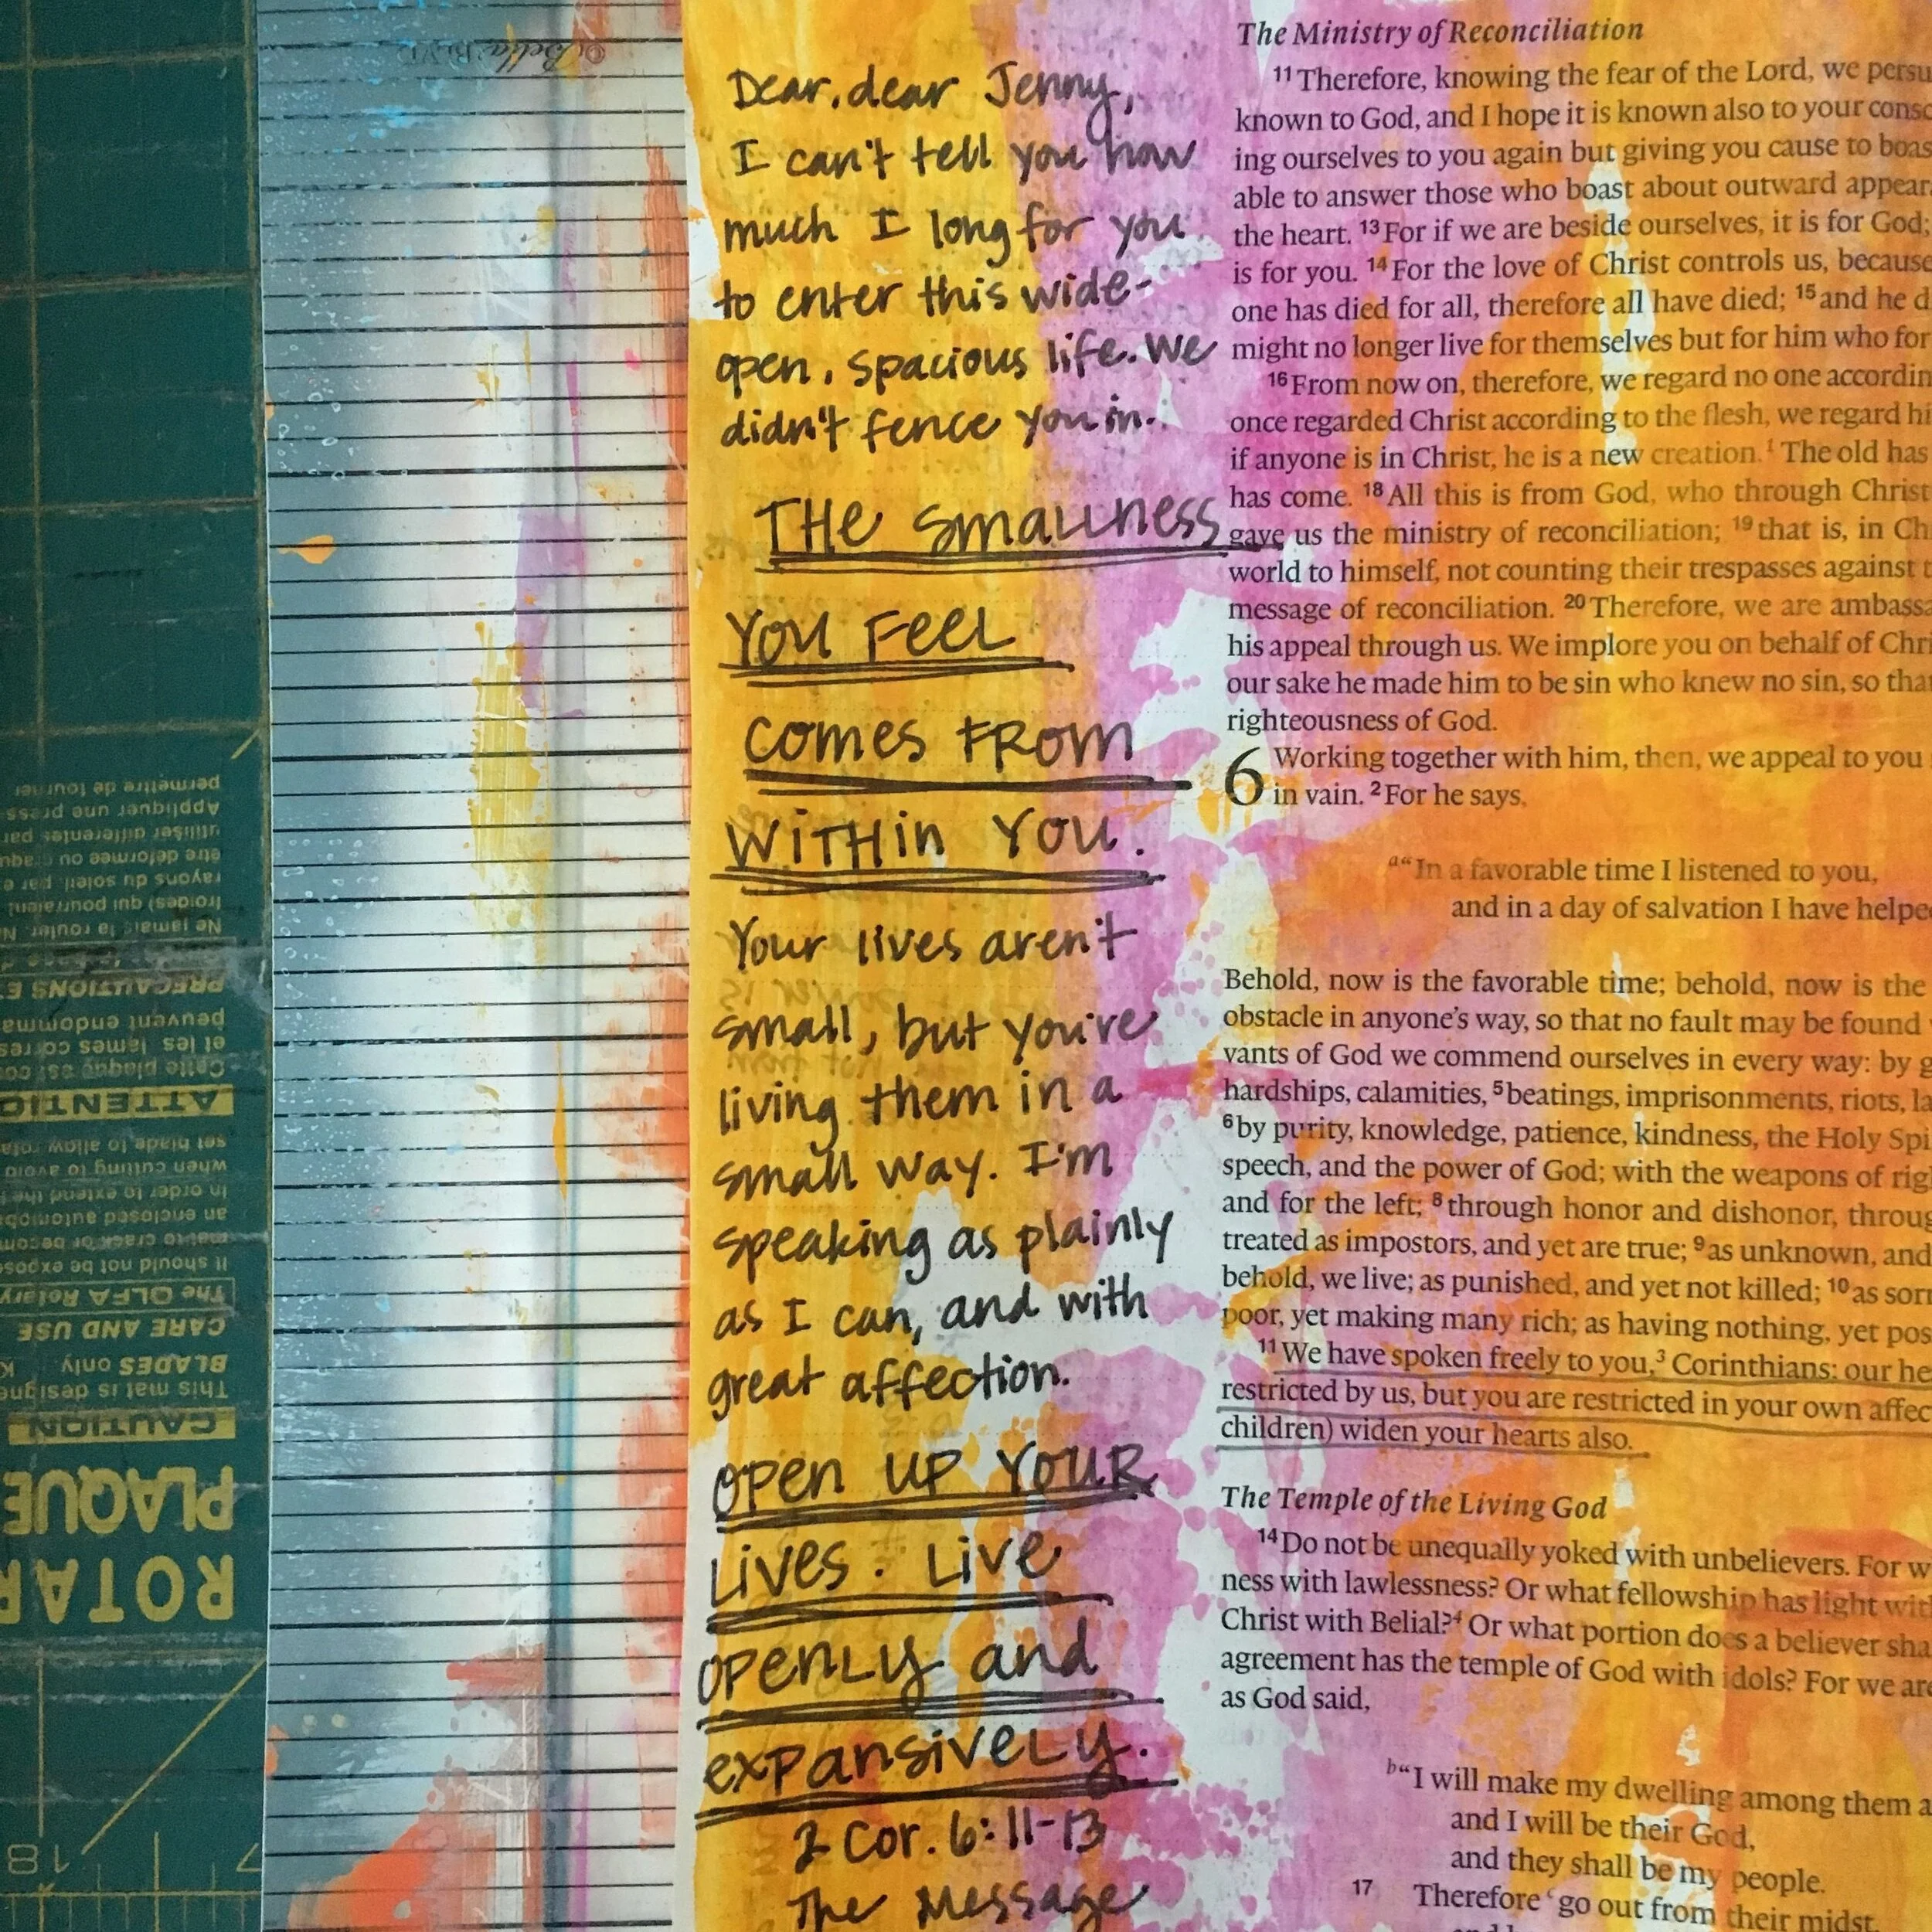 Dear, dear Jenny,
I can't tell you how
much I long for you
to enter this wide-
open, spacious life. We
didn't fence you in.
THE SMALLNESS
YOU FEEL
COMES FROM
WITHIN YOU.
Your lives aren't
small, but you're
living them in a
small way. I'm
speaking as plainly
as I can, and with
great affection.
OPEN UP YOUR
LIVES. LIVE
OPENLY and
EXPANSIVELY.
2 Cor. 6:11-13
The Message
The Ministry of Reconciliation
11 Therefore, knowing the fear of the Lord, we persu
known to God, and I hope it is known also to your consc
ing ourselves to you again but giving you cause to boas
able to answer those who boast about outward appear
the heart. 13 For if we are beside ourselves, it is for God;
is for you. 14 For the love of Christ controls us, because
one has died for all, therefore all have died; 15 and he d
might no longer live for themselves but for him who for
16 From now on, therefore, we regard no one accordin
once regarded Christ according to the flesh, we regard hi
if anyone is in Christ, he is a new creation. The old has
has come. 18 All this is from God, who through Christ
gave us the ministry of reconciliation; 19 that is, in Ch
world to himself, not counting their trespasses against t
message of reconciliation. 20 Therefore, we are ambassa
his appeal through us. We implore you on behalf of Chri
our sake he made him to be sin who knew no sin, so that
righteousness of God.
6 Working together with him, then, we appeal to you
in vain. 2 For he says,
a "In a favorable time I listened to you,
and in a day of salvation I have helpe
Behold, now is the favorable time; behold, now is the
obstacle in anyone's way, so that no fault may be found
vants of God we commend ourselves in every way: by g
hardships, calamities, 5 beatings, imprisonments, riots, la
6 by purity, knowledge, patience, kindness, the Holy Spi
speech, and the power of God; with the weapons of rig
and for the left; 8 through honor and dishonor, throug
treated as impostors, and yet are true; 9 as unknown, and
behold, we live; as punished, and yet not killed; 10 as sorr
poor, yet making many rich; as having nothing, yet pos
11 We have spoken freely to you,3 Corinthians; our he
restricted by us, but you are restricted in your own affec
children) widen your hearts also.
The Temple of the Living God
14 Do not be unequally yoked with unbelievers. For w
ness with lawlessness? Or what fellowship has light wit
Christ with Belial?4 Or what portion does a believer sha
agreement has the temple of God with idols? For we are
as God said,
b "I will make my dwelling among them a
and I will be their God,
and they shall be my people.
17 Therefore go out from their midst,
ROTAR
PLAQUE
CAUTION
This mat is designe
BLADES only
CARE AND USE
The OLFA Rotary
It should not be expose
mat to crack or becom
an enclosed automob
in order to extend the
when cutting to avoid
set blade to allow rota
ATTENTIO
Cette plaque est co
et les lames
peuvent endomma
PRECAUTIONS
Ne jamais la rouler. N
froides) qui pourraient
rayons du soleil, par e
être déformée ou
utiliser différentes par
Appliquer une press
permettre de tourner
18
7